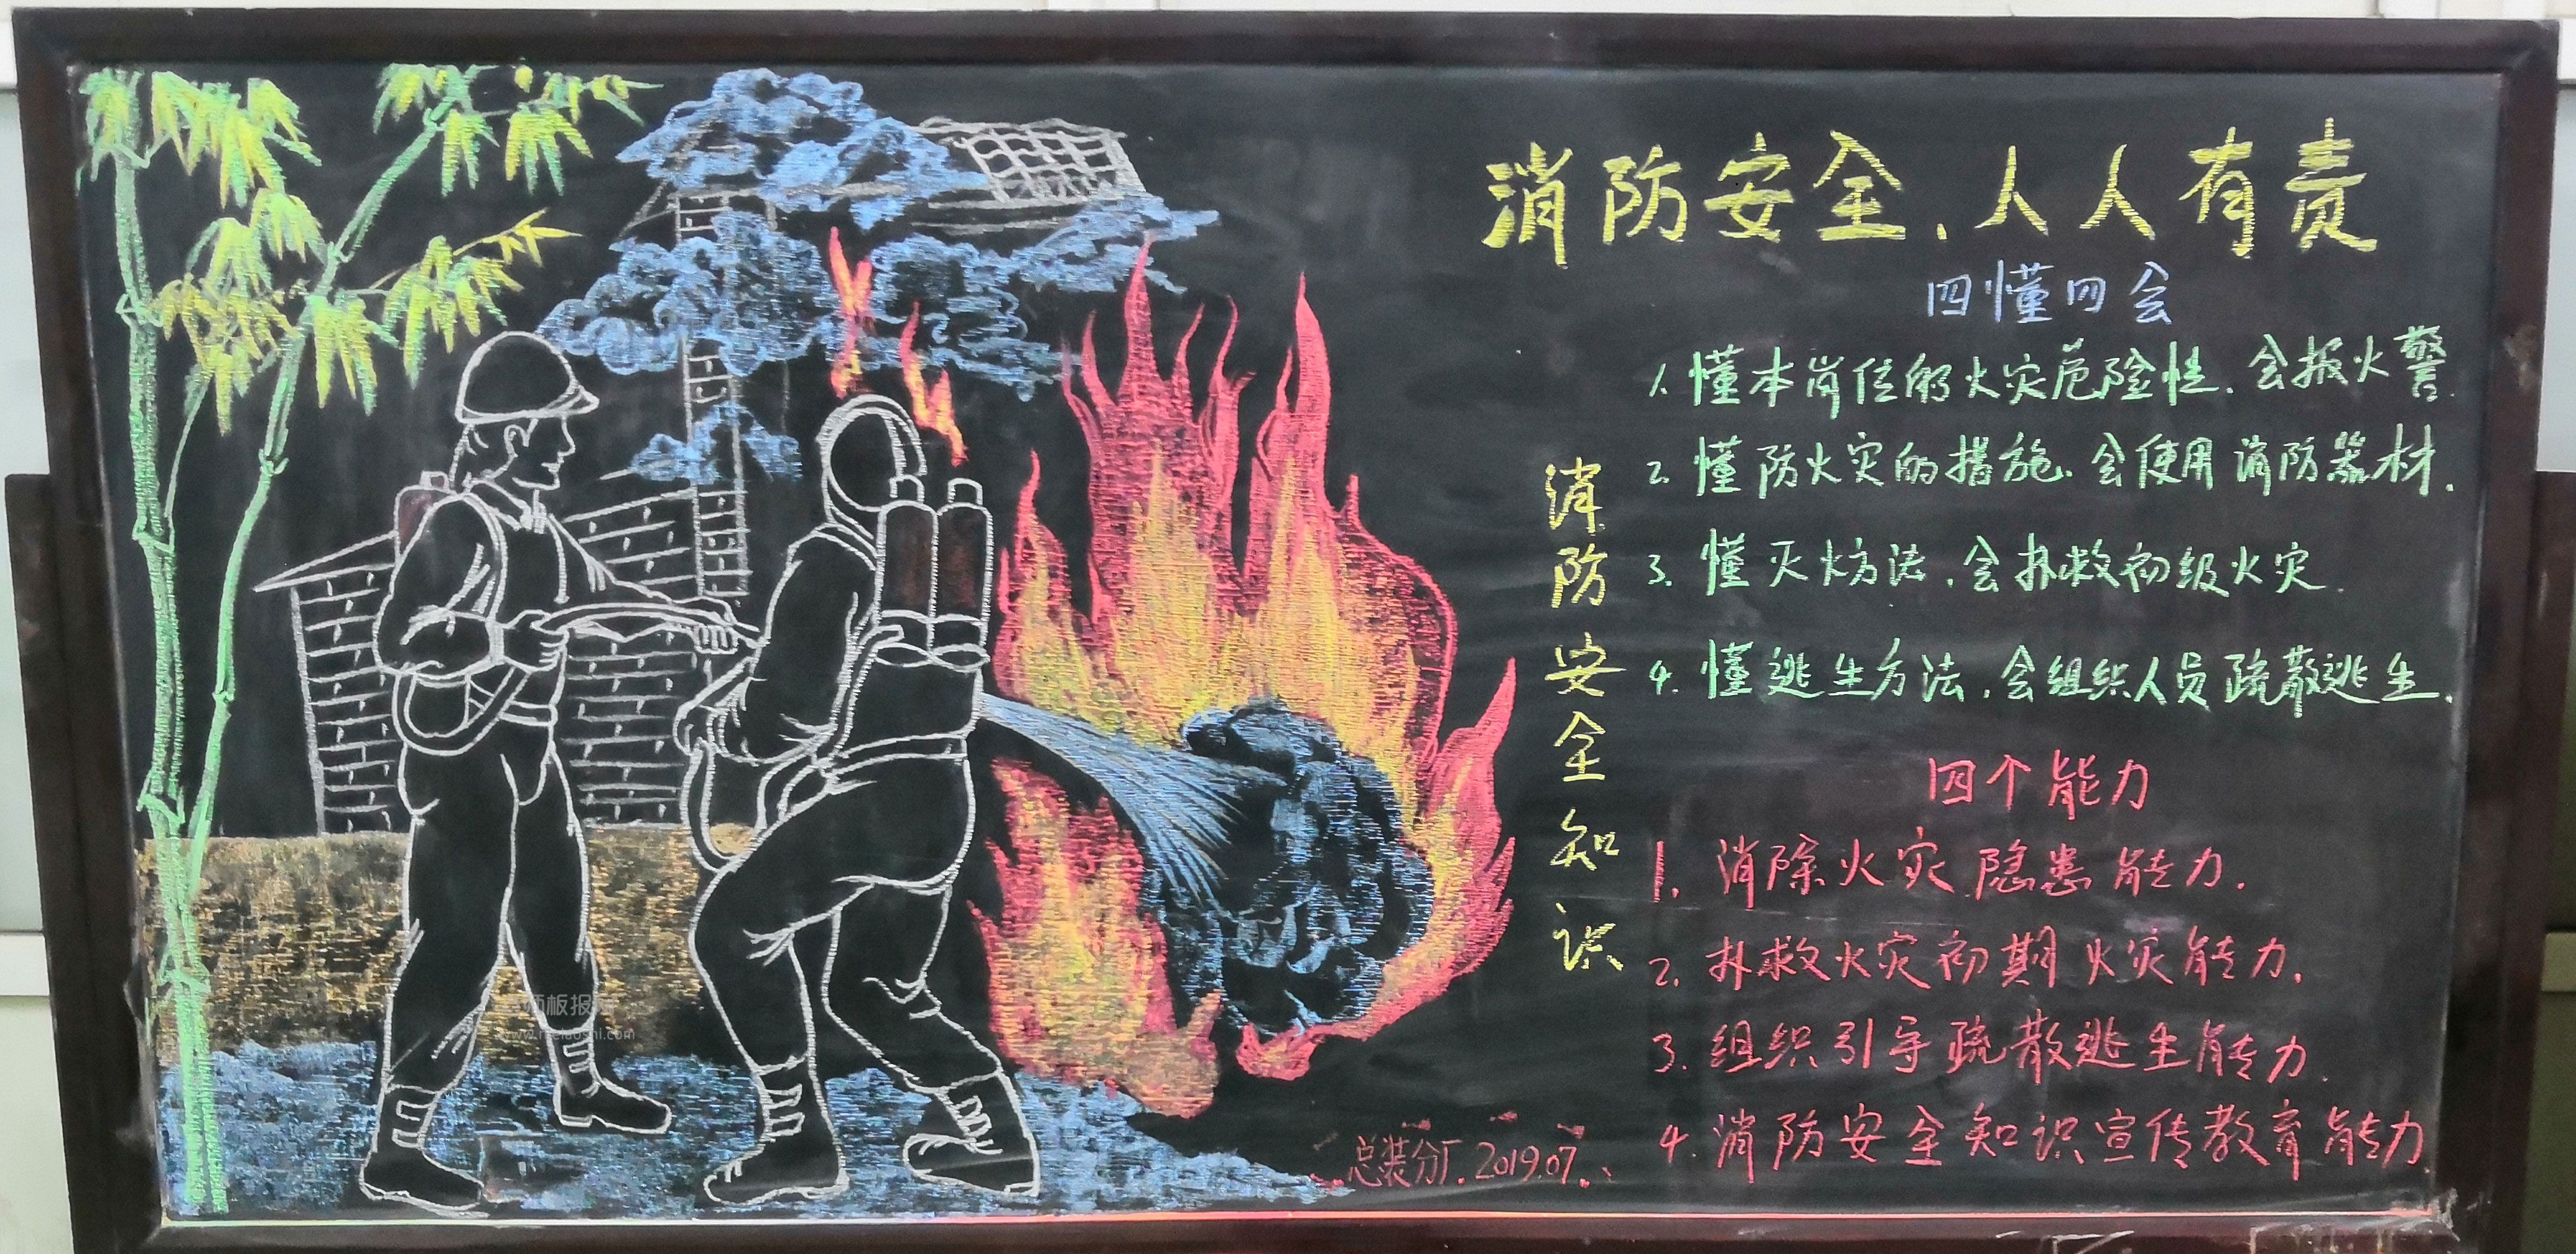 消防安全、人人有责
四懂四会
1. 懂本岗位的火灾危险性. 会报火警.
2. 懂防火灾的措施. 会使用消防器材.
3. 懂灭火方法. 会扑救初级火灾.
4. 懂逃生方法. 会组织人员疏散逃生.
消防安全知识
四个能力
1. 消除火灾隐患能力.
2. 扑救火灾初期火灾能力.
3. 组织引导疏散逃生能力.
4. 消防安全知识宣传教育能力
总装分厂. 2019.07.